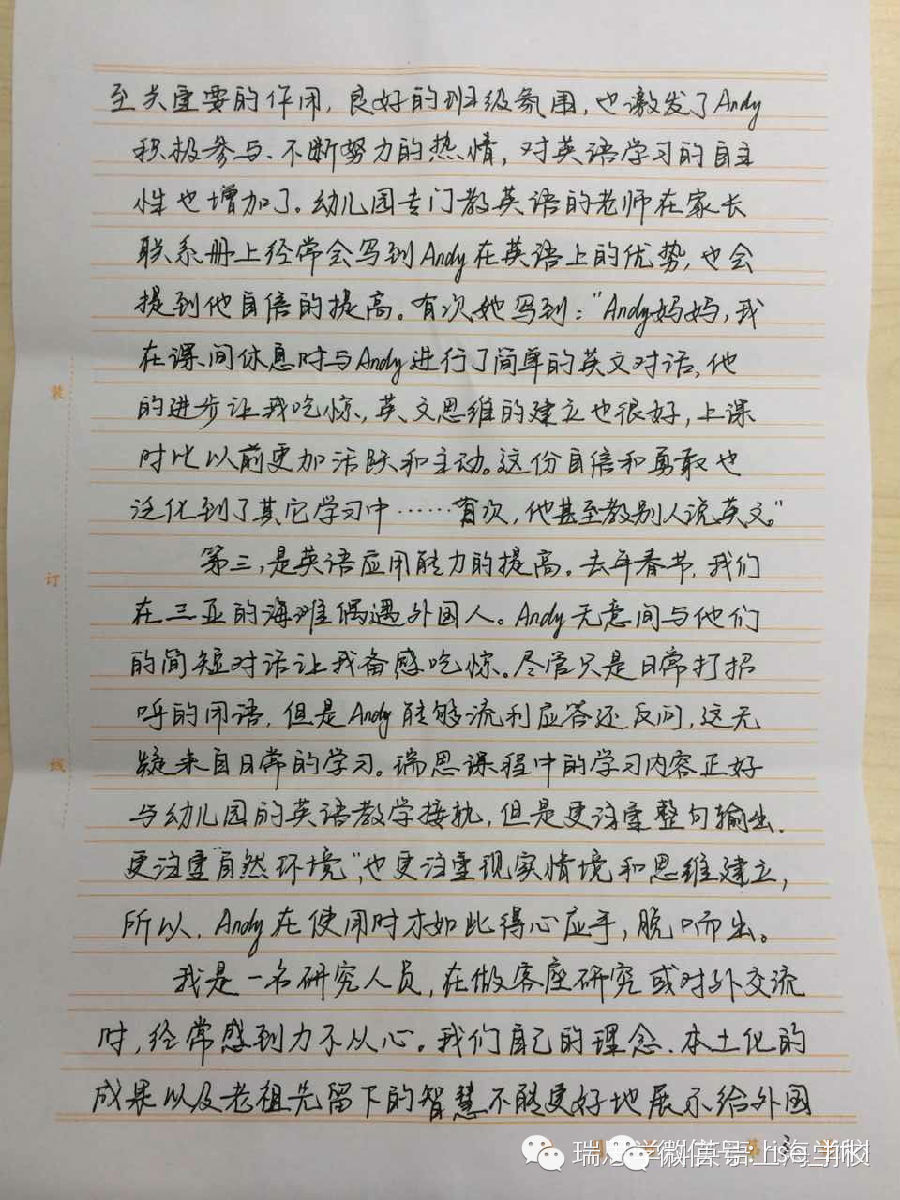 至关重要的作用，良好的班级氛围，也激发了Andy
积极参与、不断努力的热情，对英语学习的自主
性也增加了。幼儿园专门教英语的老师在家长
联系册上经常会写到Andy在英语上的优势，也会
提到他自信的提高。有次她写到：“Andy妈妈，我
在课间休息时与Andy进行了简单的英文对话，他
的进步让我吃惊，英文思维的建立也很好，上课
时比以前更加活跃和主动。这份自信和勇敢也
泛化到了其它学习中……有次，他甚至教别人说英文。”
第三，是英语应用能力的提高。去年春节，我们
在三亚的海滩偶遇外国人。Andy无意间与他们
的简短对话让我备感吃惊。尽管只是日常打招
呼的用语，但是Andy能够流利应答还反问，这无
疑来自日常的学习。瑞思课程中的学习内容正好
与幼儿园的英语教学接轨，但是更注重整句输出、
更注重“自然环境”，也更注重现实情境和思维建立，
所以，Andy在使用时才如此得心应手，脱口而出。
我是一名研究人员，在做客座研究或对外交流
时，经常感到力不从心。我们自己的理念、本土化的
成果以及老祖先留下的智慧不能更好地展示给外国
装
订
线